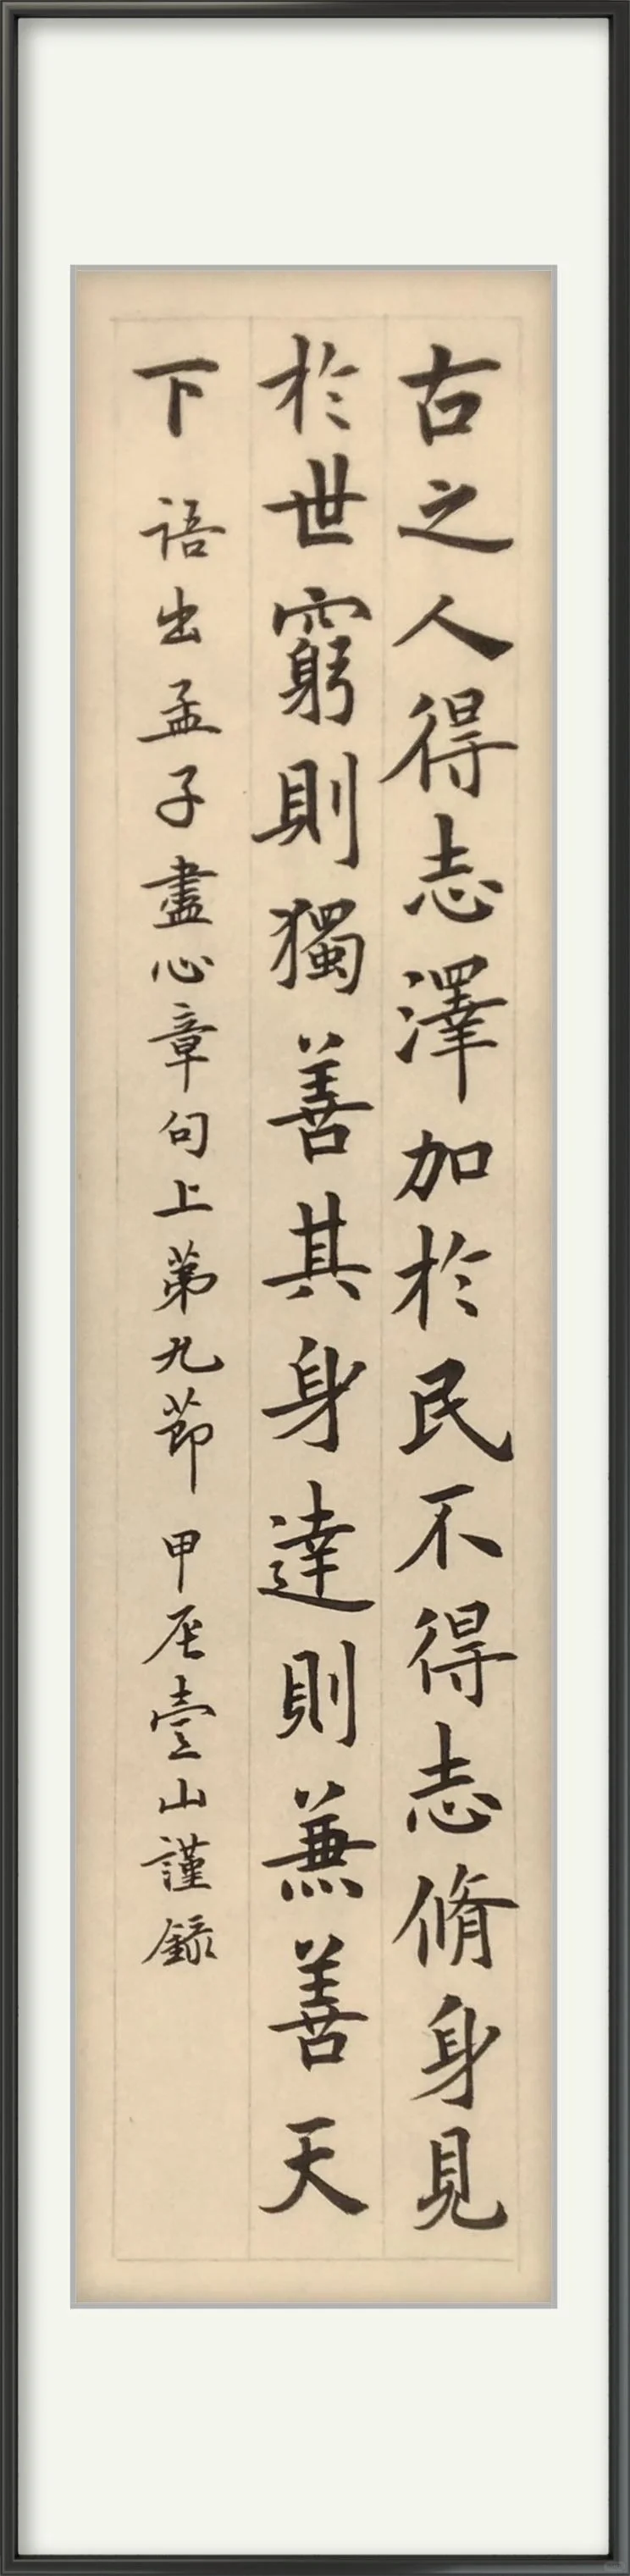 古之人得志澤加於民不得志脩身見
於世窮則獨善其身達則兼善天
下 語出孟子盡心章句上第九節 甲辰壹山謹錄